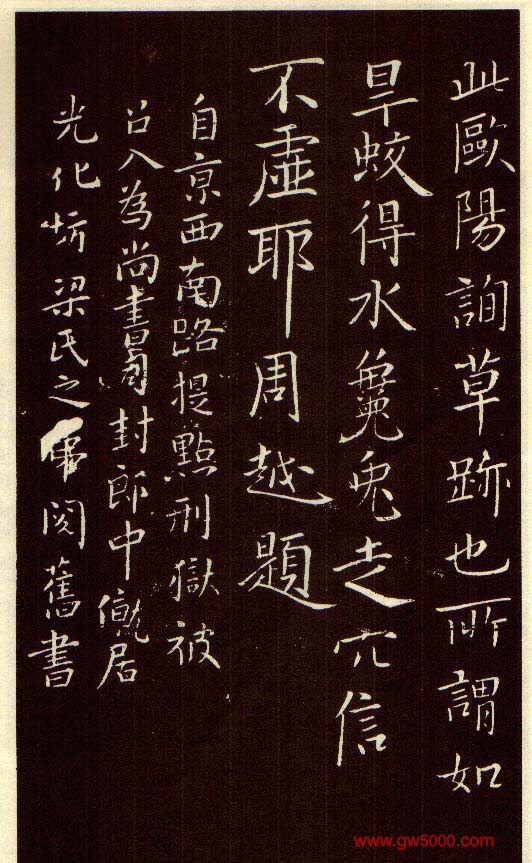 此歐陽詢草跡也所謂如
旱蛟得水毚兔走穴信
不虛耶周越題
自京西南路提點刑獄被
召入為尚書司封郎中僦居
光化坊梁氏之第閱舊書
www.gw5000.com